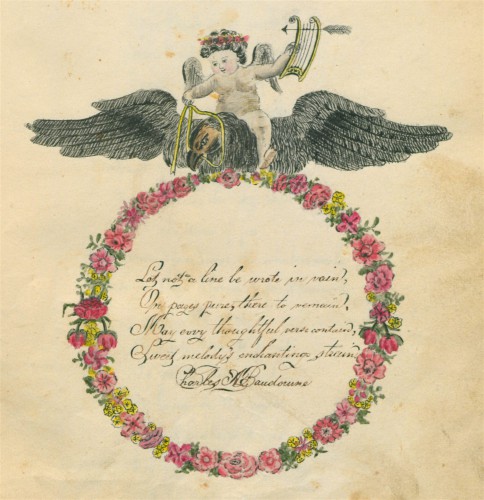 Let not a line be wrote in vain,
On pages pure, there to remain,
May every thoughtful verse contain,
Sweet melody's enchanting strain
Charles A